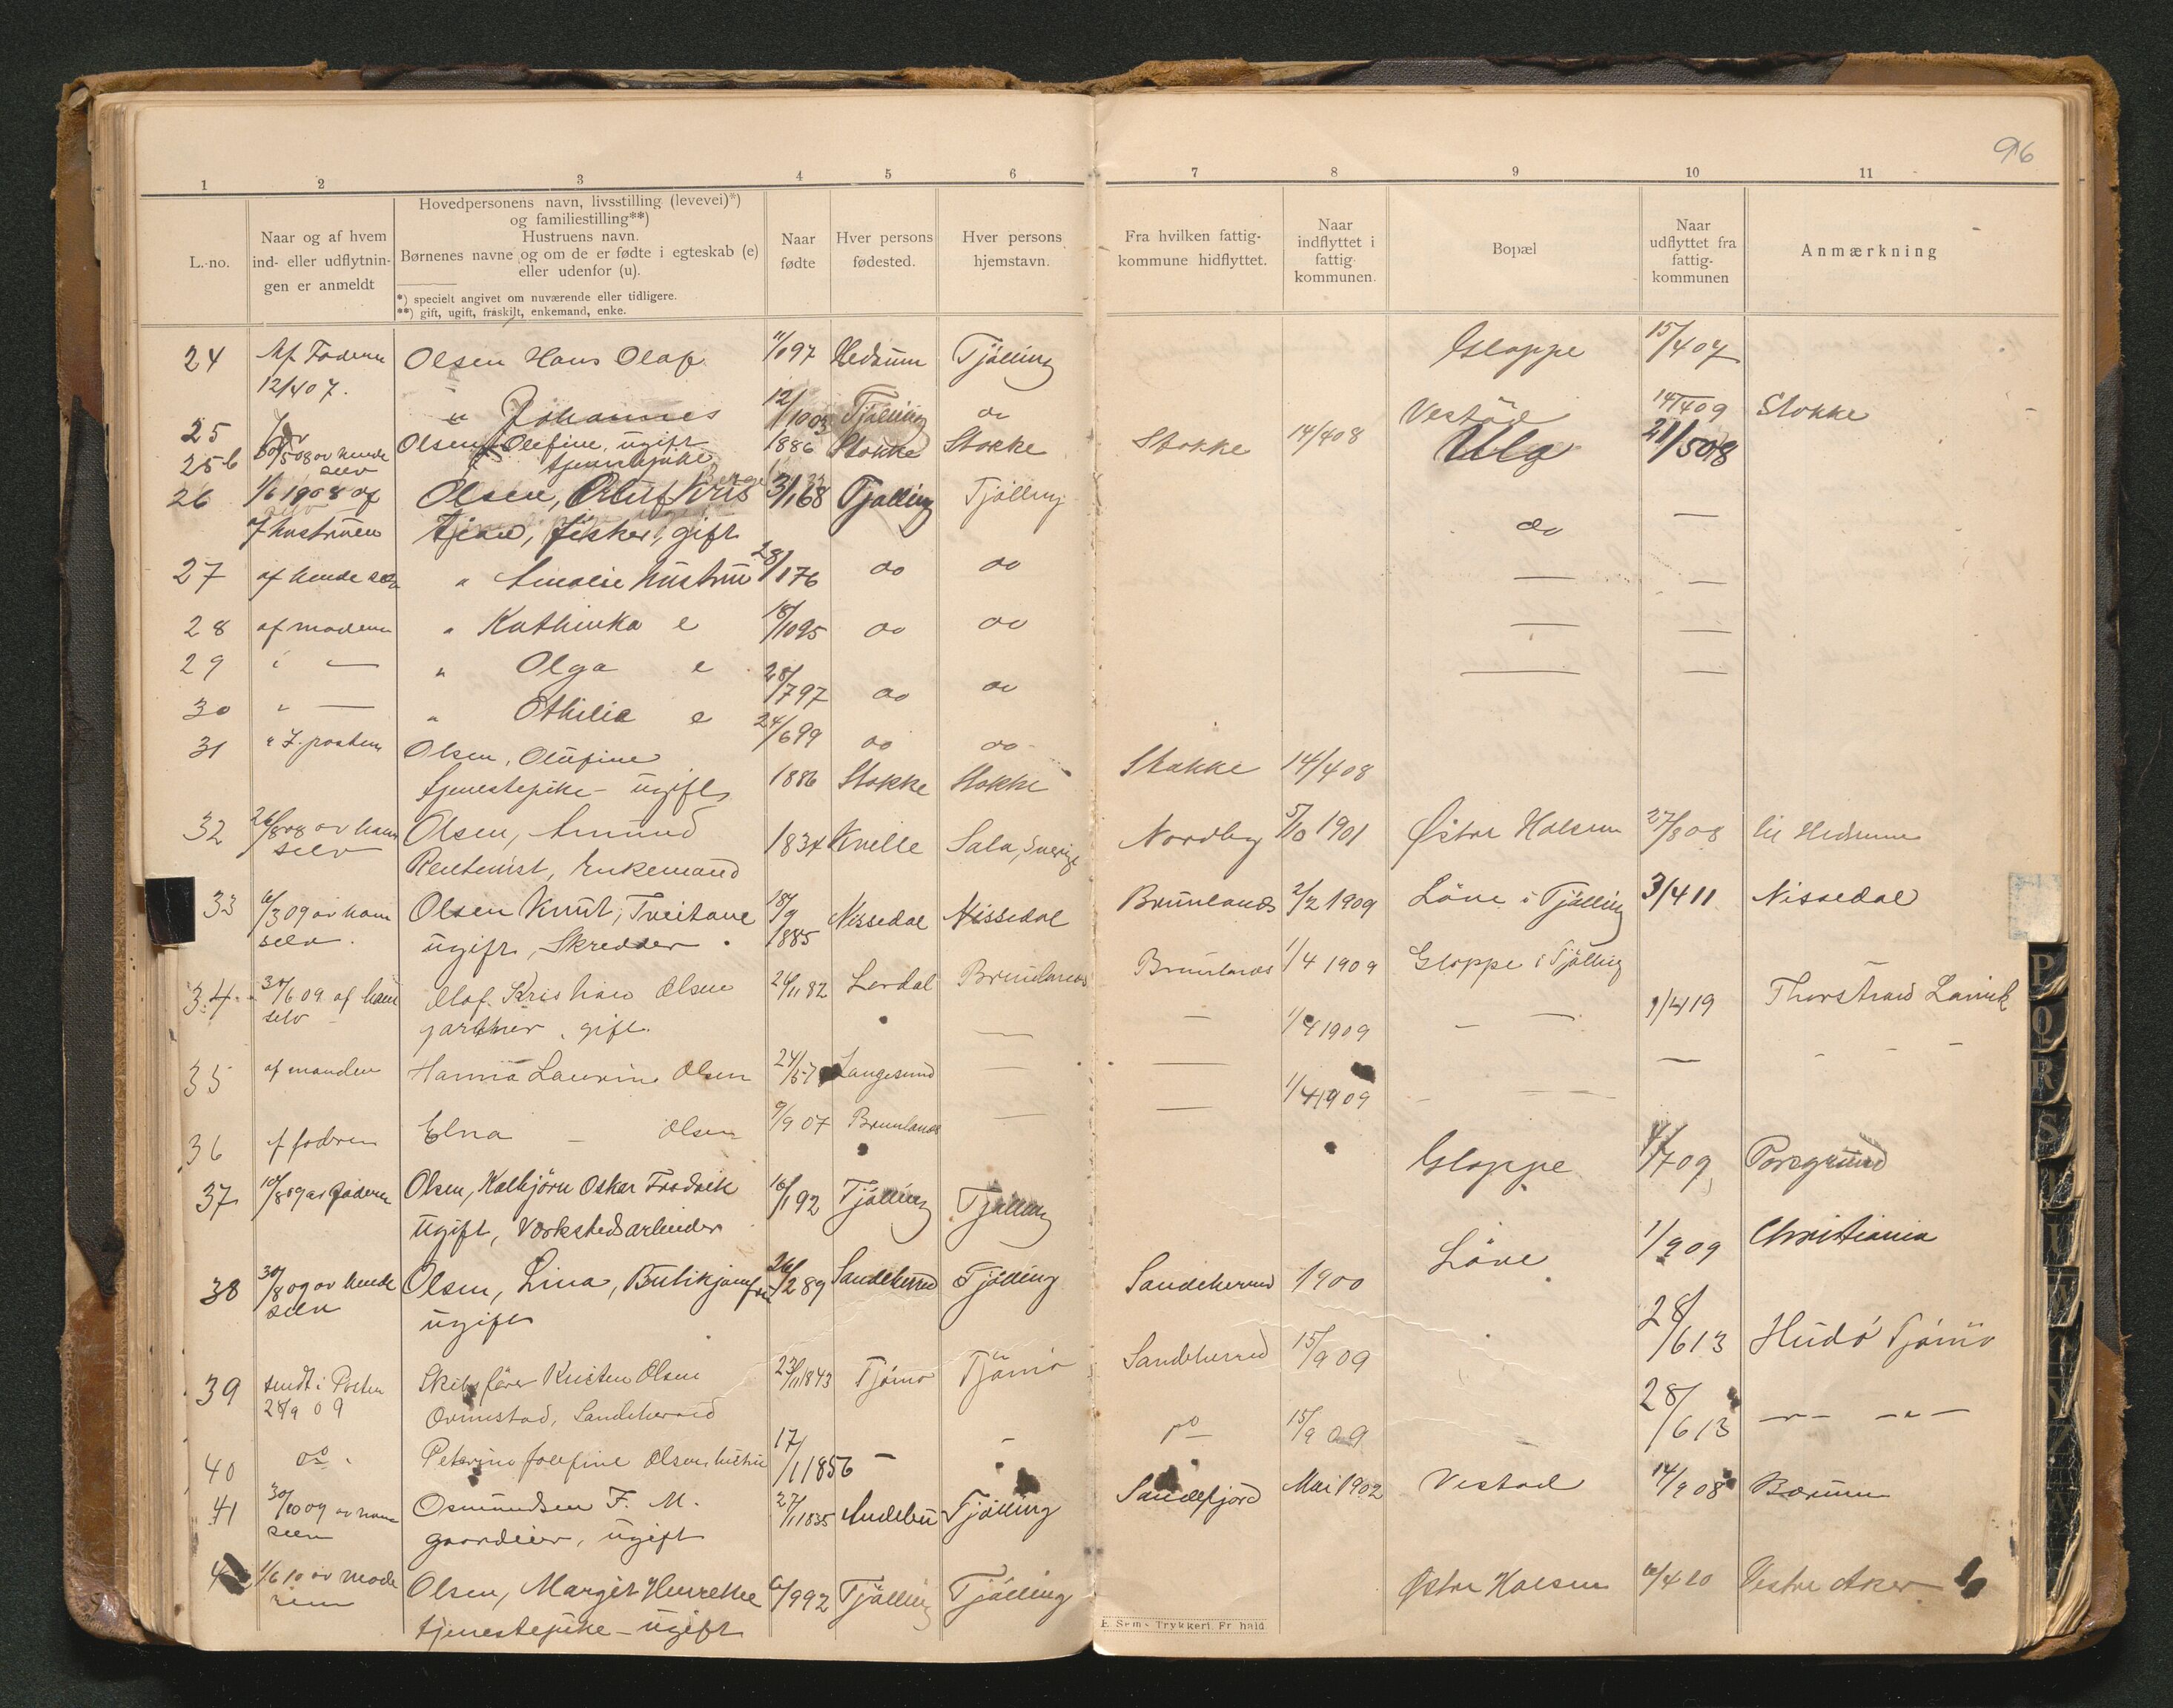 96
1 2 3 4 5 6 7 8 9 10 11
L.-no.
Naar og af hvem
ind- eller udflytnin-
gen er anmeldt
Hovedpersonens navn, livsstilling (levevei)*)
og familiestilling**)
Hustruens navn.
Børnenes navne og om de er fødte i egteskab (e)
eller udenfor (u).
*) specielt angivet om nuværende eller tidligere.
**) gift, ugift, fraskilt, enkemand, enke.
Naar
fødte
Hver persons
fødested.
Hver persons
hjemstavn.
Fra hvilken fattig-
kommune hidflyttet.
Naar
indflyttet i
fattig-
kommunen.
Bopæl
Naar
udflyttet fra
fattig-
kommunen
Anmærkning
24 Af Faderen Olsen Hans Olaf 97 Hedrum Tjølling Gloppe 15/4 07
12/4 07.
25 " Johannes 12/10 03 Tjølling do Vestad 14/4 09 Stokke
25b 5 08 av hende selv Olsen Olefine, ugift tjenestepike 1886 Stokke Stokke Stokke 14/4 08 Ula 21/5 08
26 1/6 1908 af Olsen, Oluf Kris 3/1 68 Tjølling Tjølling do —
Hustruen tian, fisker, gift
27 af hende selv " Amalie hustru 28/1 76 do do — —
28 af moderen " Kathinka e 18/10 95 do do — —
29 " — " Olga e 28/7 97 do do — —
30 " — " Othilie e 24/6 99 do do
31 " F. posten Olsen, Olufine
tjenestepike - ugift 1886 Stokke Stokke Stokke 14/4 08
32 26/8 08 av ham selv Olsen, Amund 1834 Kville Sala, Sverige Nordby 5/10 1901 Østre Halsen 27/8 08 til Hedrum
Rentenist, Enkemand
33 6/3 09 av ham selv. Olsen Knut, Treitane 18/9 1885 Nissedal Nissedal Brunlanes 2/2 1909 Löve i Tjölling 3/4 11 Nissedal
ugift, Skredder.
34 30/6 09 af ham selv Olaf Kristian Olsen 26/11 82 Lardal Brunlanes Brunlanes 1/4 1909 Gloppe i Tjölling 1/4 19 Thorstrand Larvik
gartner, gift.
35 af manden Hanna Laurine Olsen 24/5 Langesund — — 1/4 1909 — —
36 af faderen Elna — Olsen 9/9 07 Brunlanes — — 1/4 1909
37 10/8 09 av Faderen Olsen, Kolbjörn Oskar Fredrik 16/1 92 Tjölling Tjölling Gloppe 1/7 09 Porsgrund
ugift, Værkstedsarbeider
38 30/8 09 av hende selv Olsen, Lina, Butikjomfru 26/2 89 Sandeherred Tjölling Sandeherred 1900 Löve 1/9 09 Christiania
ugift
39 sendt i Posten Skibsfører Kristen Olsen 23/11 1843 Tjömö Tjömö Sandeherred 15/9 09 28/6 13 Hudö Tjömö
28/9 09 Ormestad, Sandeherred
40 do. Petrine Josefine Olsen, hustru 17/1 1856 — — do 15/9 09 28/6 13 —"— —"—
41 30/10 09 av ham selv Osmundsen F. M. 27/1 1835 Andebu Tjölling Sandefjord Mai 1902 Vestad 14/9 08 Bærum
gaardeier, ugift
42 1/6 10 av moderen Olsen, Margit Henrette 6/9 92 Tjölling Tjölling Østre Halsen 6/4 10 Vestre Aker
tjenestepike - ugift
E. Sem's Trykkeri, Fr.hald.
P
Q
R
S
T
U
V